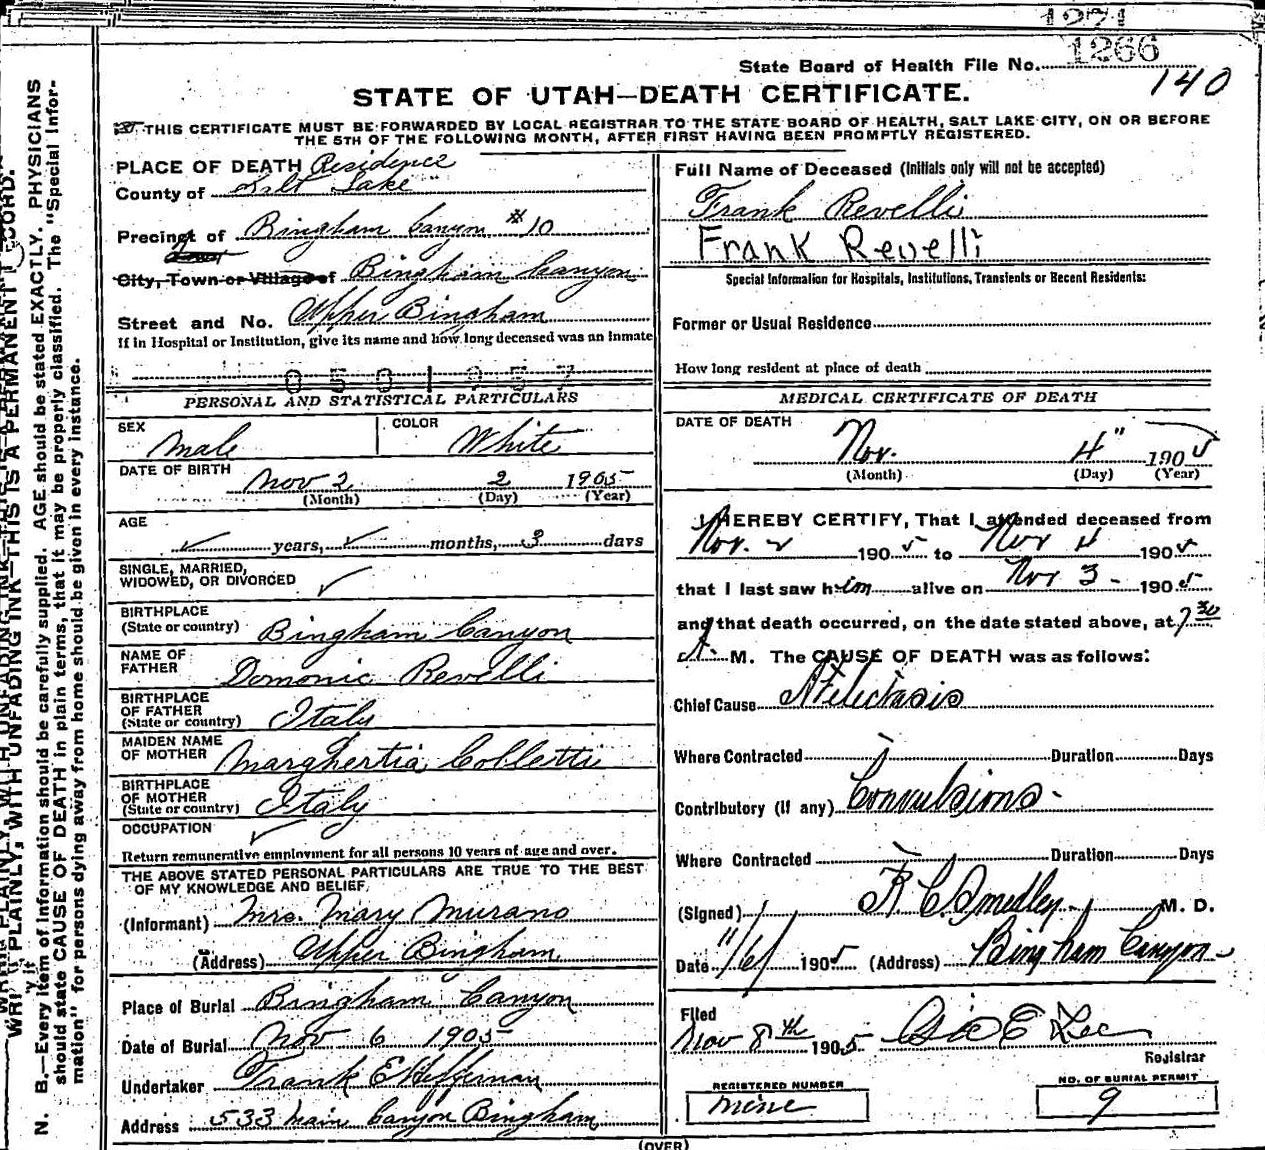 1271
1266
State Board of Health File No.
140
STATE OF UTAH—DEATH CERTIFICATE.
THIS CERTIFICATE MUST BE FORWARDED BY LOCAL REGISTRAR TO THE STATE BOARD OF HEALTH, SALT LAKE CITY, ON OR BEFORE
THE 5TH OF THE FOLLOWING MONTH, AFTER FIRST HAVING BEEN PROMPTLY REGISTERED.
PLACE OF DEATH Residence
County of Salt Lake
Precinct of Bingham Canyon #10
City, Town or Village of Bingham Canyon
Street and No. Upper Bingham
If in Hospital or Institution, give its name and how long deceased was an inmate
0501957
PERSONAL AND STATISTICAL PARTICULARS
SEX Male COLOR White
DATE OF BIRTH Nov 2 2 1905
(Month) (Day) (Year)
AGE
years, months, 3 days
SINGLE, MARRIED,
WIDOWED, OR DIVORCED
BIRTHPLACE
(State or country) Bingham Canyon
NAME OF
FATHER Domonic Revelli
BIRTHPLACE
OF FATHER
(State or country) Italy
MAIDEN NAME
OF MOTHER Marghertia Colletti
BIRTHPLACE
OF MOTHER
(State or country) Italy
OCCUPATION
Return remunerative employment for all persons 10 years of age and over.
THE ABOVE STATED PERSONAL PARTICULARS ARE TRUE TO THE BEST
OF MY KNOWLEDGE AND BELIEF,
(Informant) Mrs. Mary Murano
(Address) Upper Bingham
Place of Burial Bingham Canyon
Date of Burial Nov 6 1905
Undertaker Frank E Heffernan
Address 533 Main Canyon Bingham
Full Name of Deceased (Initials only will not be accepted)
Frank Revelli
Frank Revelli
Special Information for Hospitals, Institutions, Transients or Recent Residents:
Former or Usual Residence
How long resident at place of death
MEDICAL CERTIFICATE OF DEATH
DATE OF DEATH
Nov. 4" 1905
(Month) (Day) (Year)
I HEREBY CERTIFY, That I attended deceased from
Nov. 2 1905 to Nov 4 1905
that I last saw him alive on Nov 3 - 1905
and that death occurred, on the date stated above, at 7 30
A. M. The CAUSE OF DEATH was as follows:
Chief Cause Atelictasis
Where Contracted Duration Days
Contributory (if any) Convulsions -
Where Contracted Duration Days
(Signed) R C Smedley M. D.
Date 11/6/ 1905 (Address) Bingham Canyon
Filed
Nov 8th 1905 Geo E Lee
Registrar
REGISTERED NUMBER
nine
NO. OF BURIAL PERMIT
9
(OVER)
WRITE PLAINLY, WITH UNFADING INK—THIS IS A PERMANENT RECORD.
N. B.—Every item of information should be carefully supplied. AGE should be stated EXACTLY. PHYSICIANS
should state CAUSE OF DEATH in plain terms, that it may be properly classified. The "Special Infor-
mation" for persons dying away from home should be given in every instance.